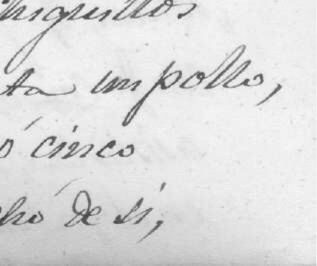 higuillos
ta un pollo,
ó cinco
chó de si,